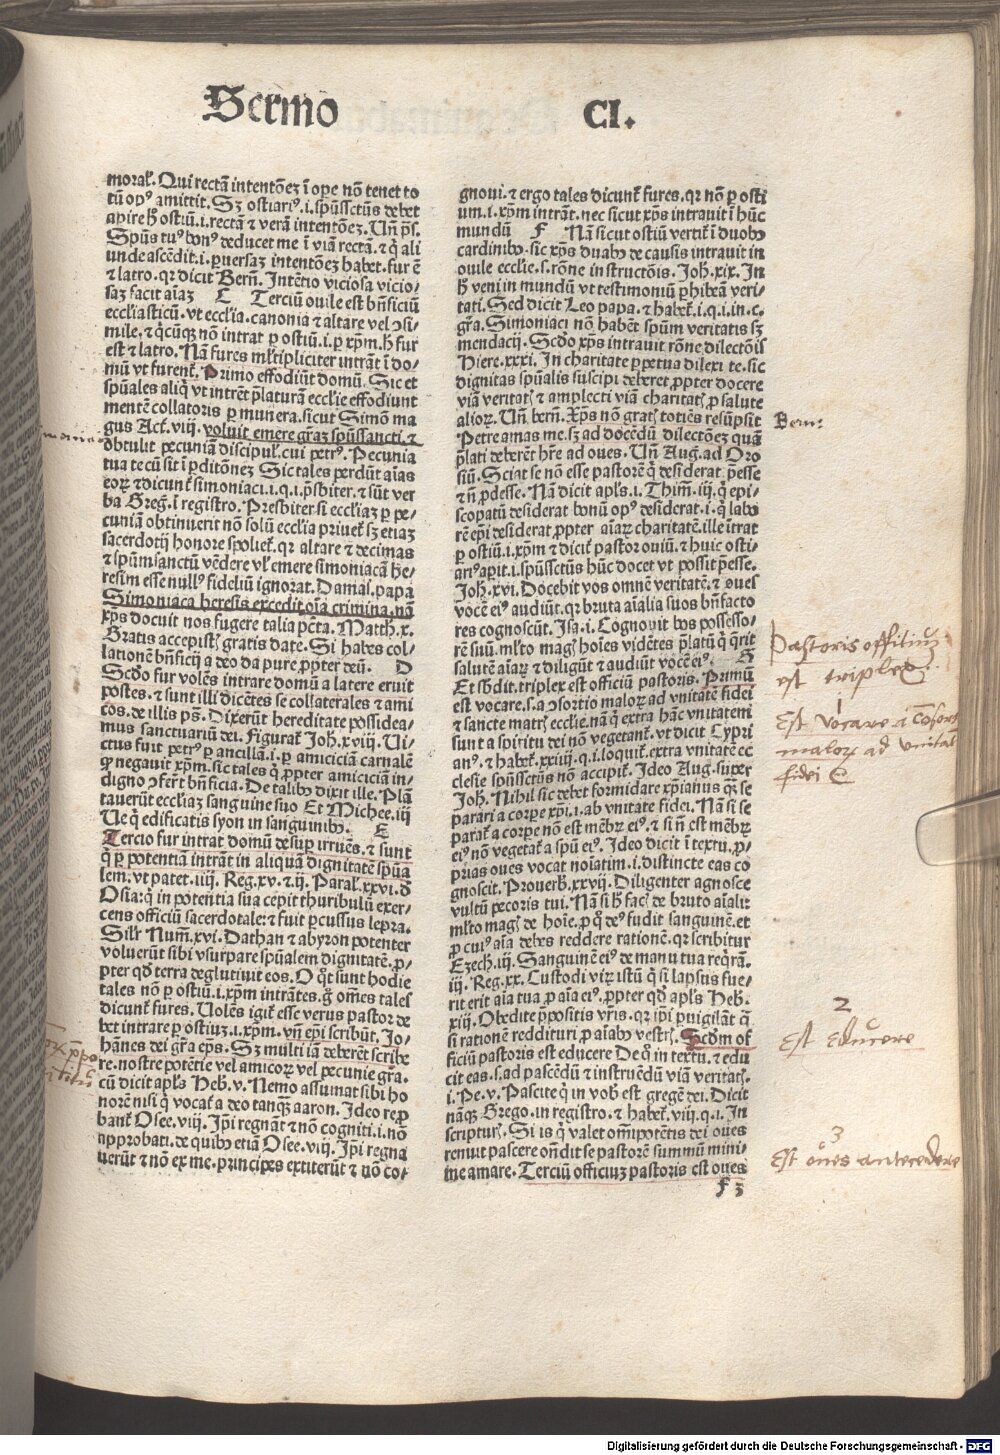 Sermo CI.
moral'. Qui rectā intentōez ī oꝑe nō tenet to
tū opꝰ amittit. Sz ostiariꝰ.i.spūssctūs debet
aꝑire h̄ ostiū.i.rectā & verā intentōez. Un̄ ps.
Spūs tuꝰ bonꝰ deducet me ī viā rectā. & q̇ ali
unde ascēdit.i.ꝑuersaz intentōez habet. fur ē
& latro. qr dicit Bern̄. Intētio viciosa vicio/
saz facit aīaz C Terciū ouile est bn̄ficiū
ecclīasticū. vt ecclīa. canonia & altare vel ↄsi-
mile. & q̇cūqꝫ nō intrat ꝑ ostiū.i.ꝑ xp̄m. h̄ fur
est & latro. Nā fures ml'tipliciter intrāt ī do/
mū vt furent'. Primo effodiūt domū. Sic et
spūales aliq̇ vt intrēt p̄laturā ecclīe effodiunt
mentē collatoris ꝑ munera. sicut Simō ma
gus Act'. viij. voluit emere grāz spūssancti. &
obtulit pecuniā discipul'. cui petrꝰ. Pecunia
tua tecū sit ī ꝑditōnez Sic tales perdūt aīas
eorꝝ & dicunt' simoniaci.i.q.i.p̄sbiter. & sūt ver
ba Greg. ī registro. Presbiter si ecclīaz ꝑ pe/
cuniā obtinuerit nō solū ecclīa priuet' sz etiaz
sacerdotij honore spoliet'. qr altare & decimas
& spūmsanctū vēdere vl' emere simoniacā he/
resim esse nullꝰ fideliū ignorat. Damas. papa
Simoniaca heresis excedit oīa crimina. nā
xp̄s docuit nos fugere talia pctā. Matth. x.
Gratis accepist' gratis date. Si habes col/
lationē bn̄ficij a deo da pure ꝓpter deū. D
Scdo fur volēs intrare domū a latere eruit
postes. & sunt illi dicētes se collaterales & ami
cos. de illis ps. Dixerūt hereditate possidea/
mus sanctuariū dei. Figurat' Joh. xviij. Ui/
ctus fuit petrꝰ ꝑ ancillā.i.ꝑ amiciciā carnalē
ꝙ negauit xp̄m. sic tales q̇ ꝓpter amiciciā in/
digno ↄferūt bn̄ficia. De talibꝰ dixit ille. Plā
tauerūt ecclīaz sanguine suo Et Michee. iij
Ue q̇ edificatis syon in sanguinibꝰ. E
Tercio fur intrat domū desuꝑ irruēs. & sunt
q̇ ꝑ potentiā intrāt in aliquā dignitatē spūa
lem. vt patet. iiij. Reg. xv. & ij. Paral'. xxvi. d
Osia: q̇ in potentia sua cepit thuribulū exer/
cens officiū sacerdotale: & fuit ꝑcussus lepra.
Sil'r Num̄. xvi. Dathan & abyron potenter
voluerūt sibi vsurpare spūalem dignitatē. ꝓ/
pter qd terra deglutiuit eos. O q̇t sunt hodie
tales nō ꝑ ostiū.i.xp̄m intrātes. g̊ om̄es tales
dicunt' fures. Uolēs igit' esse verus pastor de
bet intrare ꝑ ostiuz.i.xp̄m. vn̄ ep̄i scribūt. Jo/
hānes dei grā ep̄s. Sz multi iā deberēt scribe
re. nostre potētie vel amicorꝝ vel pecunie grā.
cū dicit apl's Heb. v. Nemo assumat sibi ho
norē nisi q̇ vocat' a deo tanqꝫ aaron. Ideo reꝓ
bant' Osee. viij. Ip̄i regnāt & nō cogniti.i.nō
approbati. de quibꝰ etiā Osee. viij. Ip̄i regna
uerūt & nō ex me. principes extiterūt & nō co-
gnoui. & ergo tales dicunt' fures. qr nō ꝑ osti
um.i.xp̄m intrāt. nec sicut xp̄s intrauit ī hūc
mundū F Nā sicut ostiū vertit' ī duobꝰ
cardinibꝰ. sic xp̄s duabꝰ de causis intrauit in
ouile ecclīe.s.rōne instructōis. Joh. xix. In
h̄ veni in mundū vt testimoniū ꝑhibeā veri-
tati. Sed dicit Leo papa. & habet'.i.q.i.in.c.
grā. Simoniaci nō habēt spūm veritatis sz
mendacij. Scdo xp̄s intrauit rōne dilectōis
Hiere. xxxi. In charitate ꝑpetua dilexi te. sic
dignitas spūalis suscipi deberet ꝓpter docere
viā veritat' & amplecti viā charitat' ꝓ salute
aliorꝝ. Un̄ bern̄. Xp̄s nō grat' totiēs resūpsit
Petre amas me. sz ad docēdū dilectōez quā
p̄lati deberēt hr̄e ad oues. Un̄ Aug. ad Oro
siū. Sciat se nō esse pastorē q̇ desiderat p̄esse
& n̄ ꝓdesse. Nā dicit apl's.i.Thim̄. iij. q̇ epi/
scopatū desiderat bonū opꝰ desiderat.i.q̇ labo
rē ep̄i desiderat ꝓpter aīarꝝ charitatē. ille ītrat
ꝑ ostiū.i.xp̄m & dicit' pastor ouiū. & huic osti/
ariꝰ aꝑit.i.spūssctūs hūc docet vt possit p̄esse.
Joh. xvi. Docebit vos omnē veritatē. & oues
vocē eiꝰ audiūt. qr bruta aīalia suos bn̄facto
res cognoscūt. Isa.i. Cognouit bos possesso/
rē suū. ml'to mag' hoīes vidētes p̄latū q̇ q̄rit
salutē aīarꝝ & diligūt & audiūt vocē eiꝰ. G
Et sbdit. triplex est officiū pastoris. Primū
est vocare.s.a ↄsortio malorꝝ ad vnitatē fidei
& sancte matr' ecclīe. nā q̇ extra hāc vnitatem
sunt a spiritu dei nō vegetant'. vt dicit Cypri
anꝰ. & habet'. xxiiij.q.i.loquit'. extra vnitatē ec
clesie spūssctūs nō accipit'. Ideo Aug. super
Joh. Nihil sic debet formidare xp̄ianus qꝫ se
parari a corꝑe xp̄i.i.ab vnitate fidei. Nā si se
parat' a corꝑe nō est mēbꝝ eiꝰ. & si n̄ est mēbꝝ
eiꝰ nō vegetat' a spū eiꝰ. Ideo dicit ī textu. ꝓ/
prias oues vocat noīatim.i.distincte eas co
gnoscit. Prouerb'. xxvij. Diligenter agnosce
vultū pecoris tui. Nā si h̄ fac' de bruto aīali:
ml'to mag' de hoīe. ꝓ q̊ deꝰ fudit sanguinē. et
ꝓ cuiꝰ aīa debes reddere rationē. qr scribitur
Ezech. iij. Sanguinē eiꝰ de manu tua reqrā.
iij. Reg. xx. Custodi virꝝ istū q̇ si lapsus fue/
rit erit aīa tua ꝓ aīa eiꝰ. ꝓpter qd apl's Heb.
xiij. Obedite p̄positis vr̄is. qr ip̄i ꝑuigilāt q̄
si rationē reddituri ꝓ aīabꝰ vestr'. Scdm of
ficiū pastoris est educere De q̊ in textu. & edu
cit eas.s.ad pascēdū & instruēdū viā veritat'.
i. Pe. v. Pascite q̇ in vob' est gregē dei. Dicit
nāqꝫ Grego. in registro. & habet'. viij.q.i. In
scriptur'. Si is q̇ valet om̄ipotētis dei oues
renuit pascere on̄dit se pastorē summū mini/
me amare. Terciū officiuz pastoris est oues
f 3
Bern:
Pastoris offitium
est triplex.
1
Est vocare a cōsort
malorꝝ ad vnitat
fidei
2
Est educere
3
Est oues antecedere
Digitalisierung gefördert durch die Deutsche Forschungsgemeinschaft - DFG